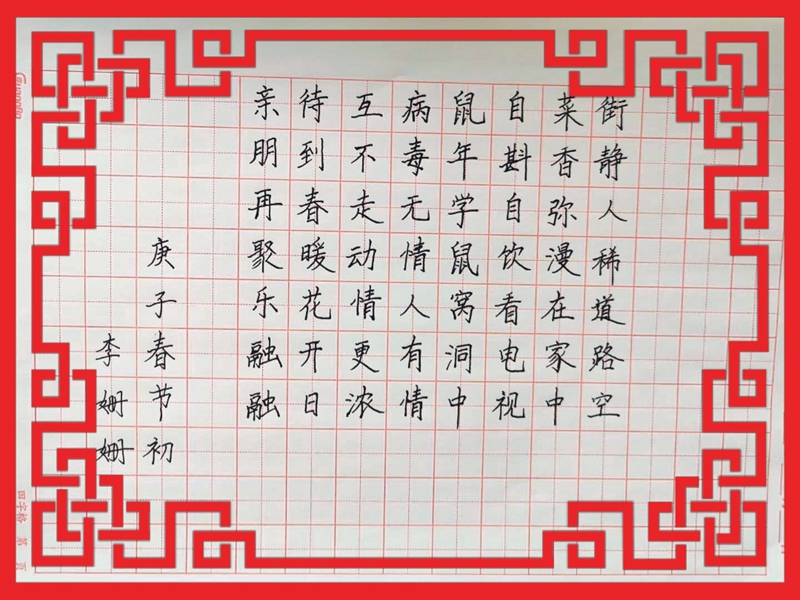 街静人稀道路空
菜香弥漫在家中
自斟自饮看电视
鼠年学鼠窝洞中
病毒无情人有情
互不走动情更浓
待到春暖花开日
亲朋再聚乐融融
庚子春节初
李姗姗